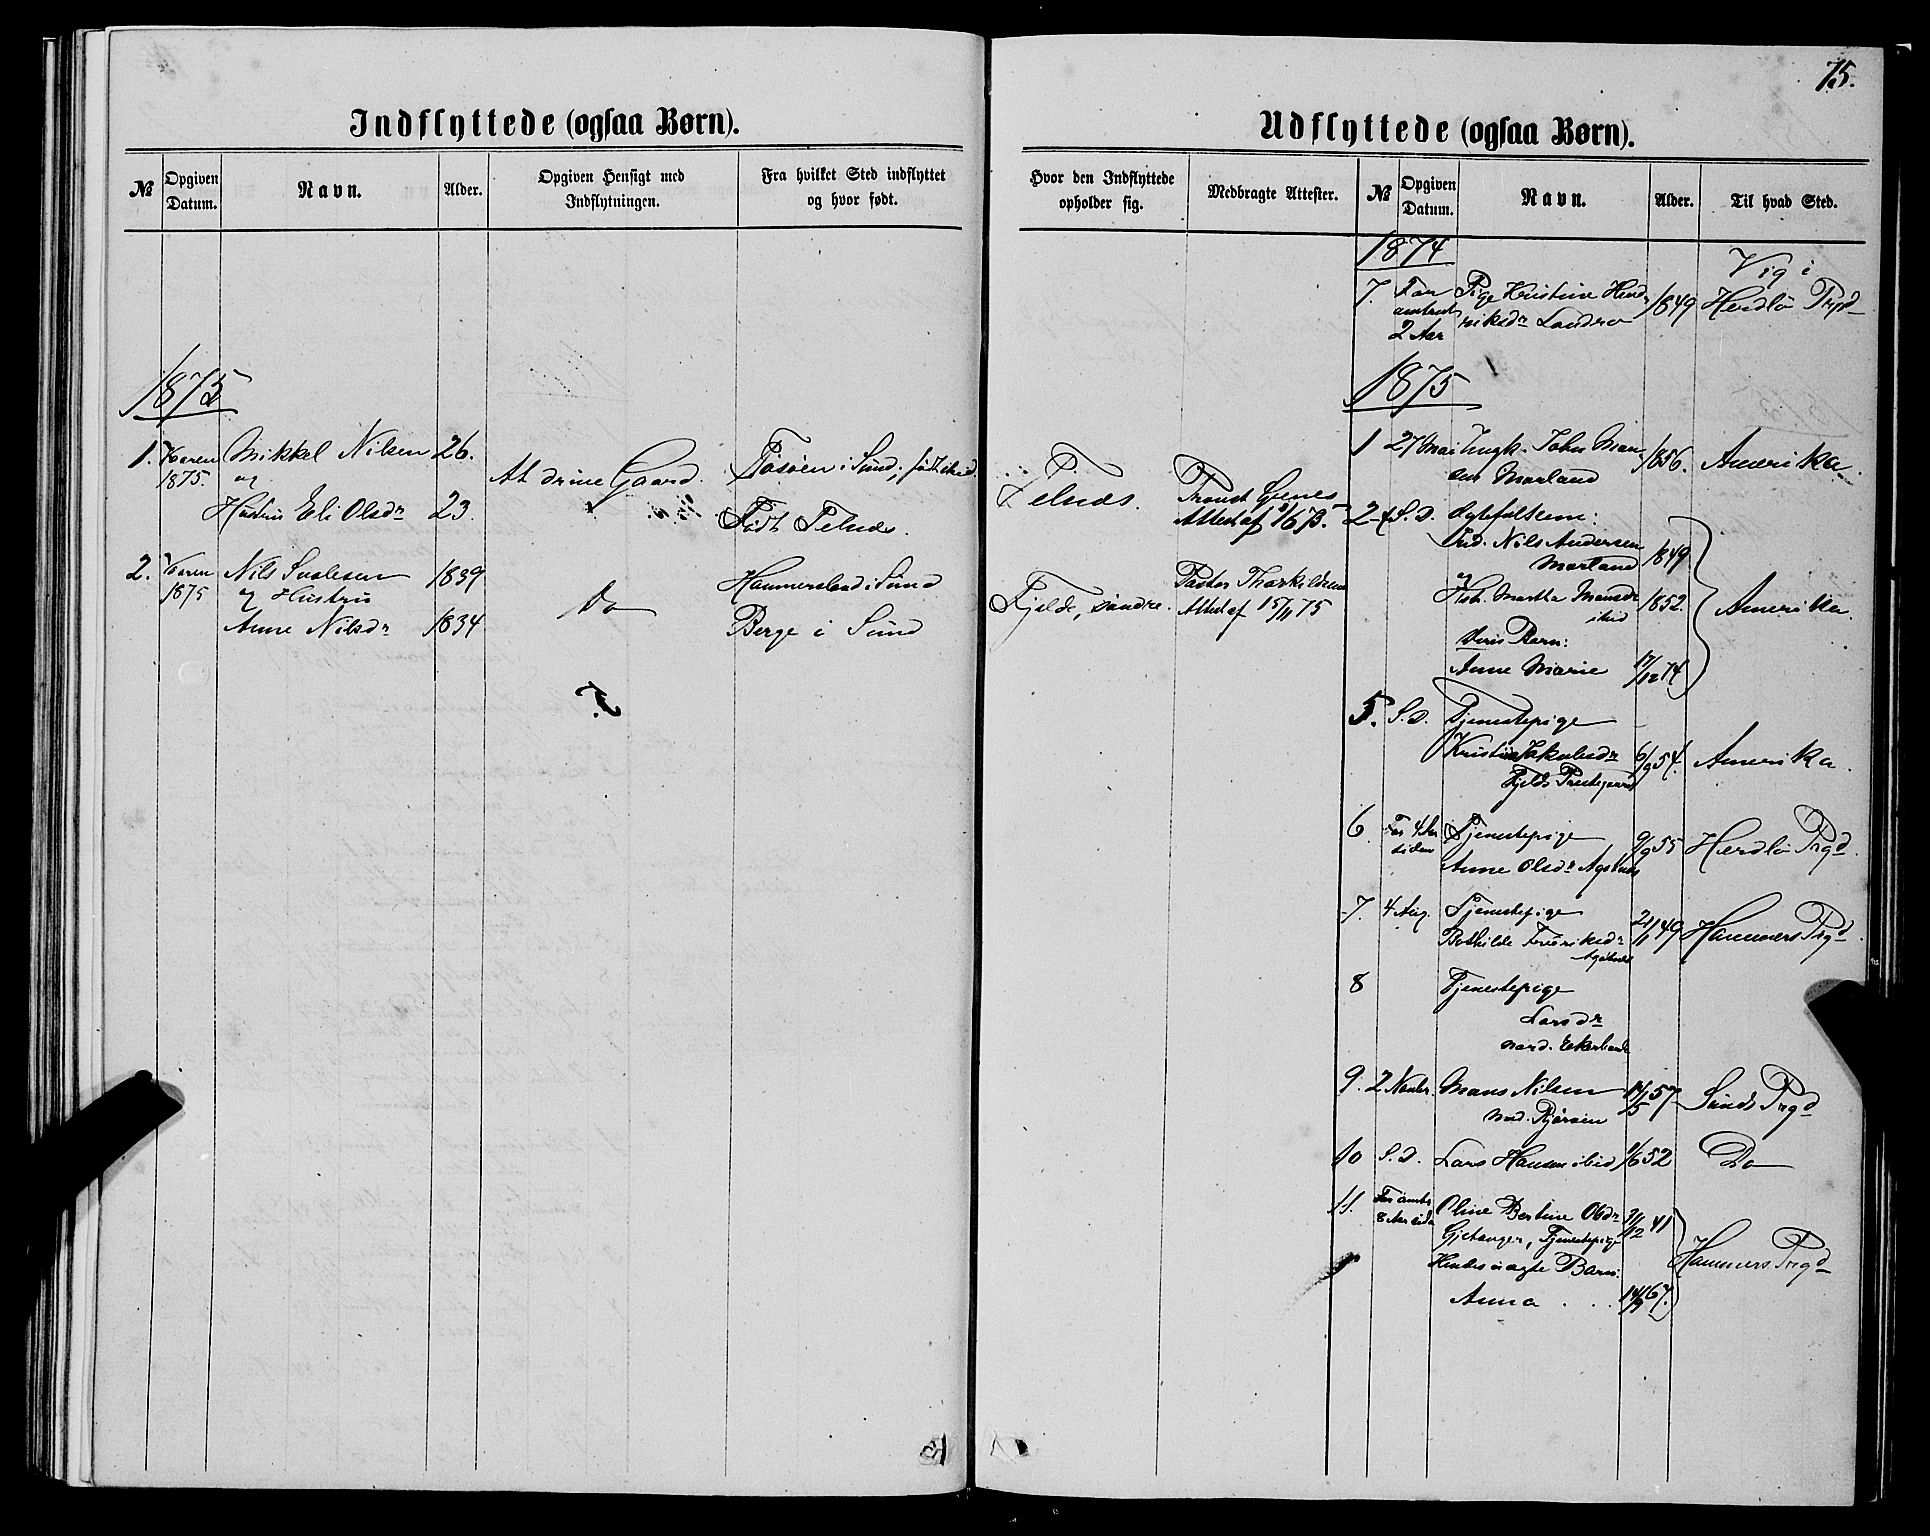 75.
Indflyttede (ogsaa Børn).
№
Opgiven Datum.
Navn.
Alder.
Opgiven Hensigt med Indflytningen.
Fra hvilket Sted indflyttet og hvor født.
1875
1. Vaaren 1875. Mikkel Nilsen 26. At drive Gaard.
og
Hustru Eli Olsdr 23. Født Telnæs.
2. Vaaren 1875 Nils Sjalesen 1839 Hammersland i Sund
og Hustru Do
Anne Nilsdr 1834 Berge i Sund
Hvor den Indflyttede opholder sig.
Medbragte Attester.
Telnæs.
Provst Gjenes
Attest af
Fjelde, søndre.
Pastor Thorkildsens
Attest af 15/11 75
Udflyttede (ogsaa Børn).
№
Opgiven Datum.
Navn.
Alder.
Til hvad Sted.
1874
Vig i
7. For Pige Kristine Hend- 1849 Herdlø Prgd
omtrent riksdr Landro
2 Aar
1875
1 27 Mai Ungk. John Mon- 1856. Amerika.
sen Morland
2-4 S. D. Ægtefolkene:
Ind. Nils Andersen
Morland 1849
og
Hstr. Martha Monsdr 1852. Amerika.
ibid
Deres Barn:
Anne Marie 17/12 74
5. S. D. Tjenestepige
Kristi Jakobsdr 6/9 54. Amerika.
Fjelds Præstegaard
6. For 4 Aar Tjenestepige 9/9 55 Herdlø Prgd.
siden
Anne Olsdr Agotnes
7. 4 Aug. Tjenestepige 21/11 49 Hammers Prgd.
Bothilde Fredriksdr
Agotnes
8 Tjenestepige
Larsdr
nord. Ekerhovd
9. 2 Novbr. Mons Nilsen 14/5 57 Sunds Prgd
10 S. D. Lars Hansen ibid 1/6 52 Do
11. For omtr. Oline Bertine Olsdr 31/12 41
8 Aar siden Gjetanger, Tjenestepige
Hendes uægte Barn: Hammers Prgd
Anna . . . 14/9 67.